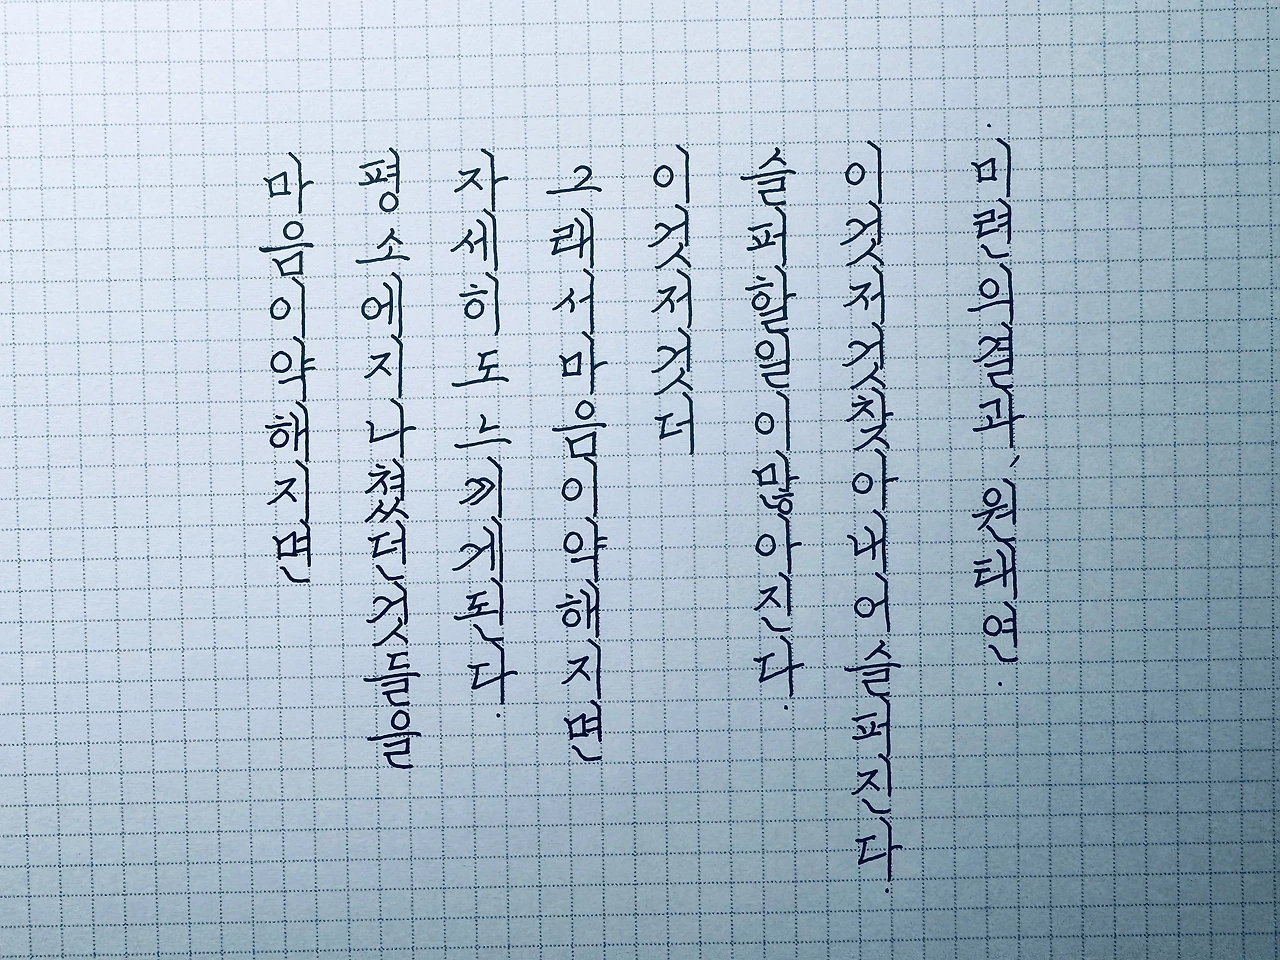 마음이 약해지면
평소에 지나쳤던 것들을
자세히도 느끼게 된다.
그래서 마음이 약해지면
이것저것 더
슬퍼할 일이 많아진다.
이것저것 슬퍼진다.
·미련의 결과, 원태연·